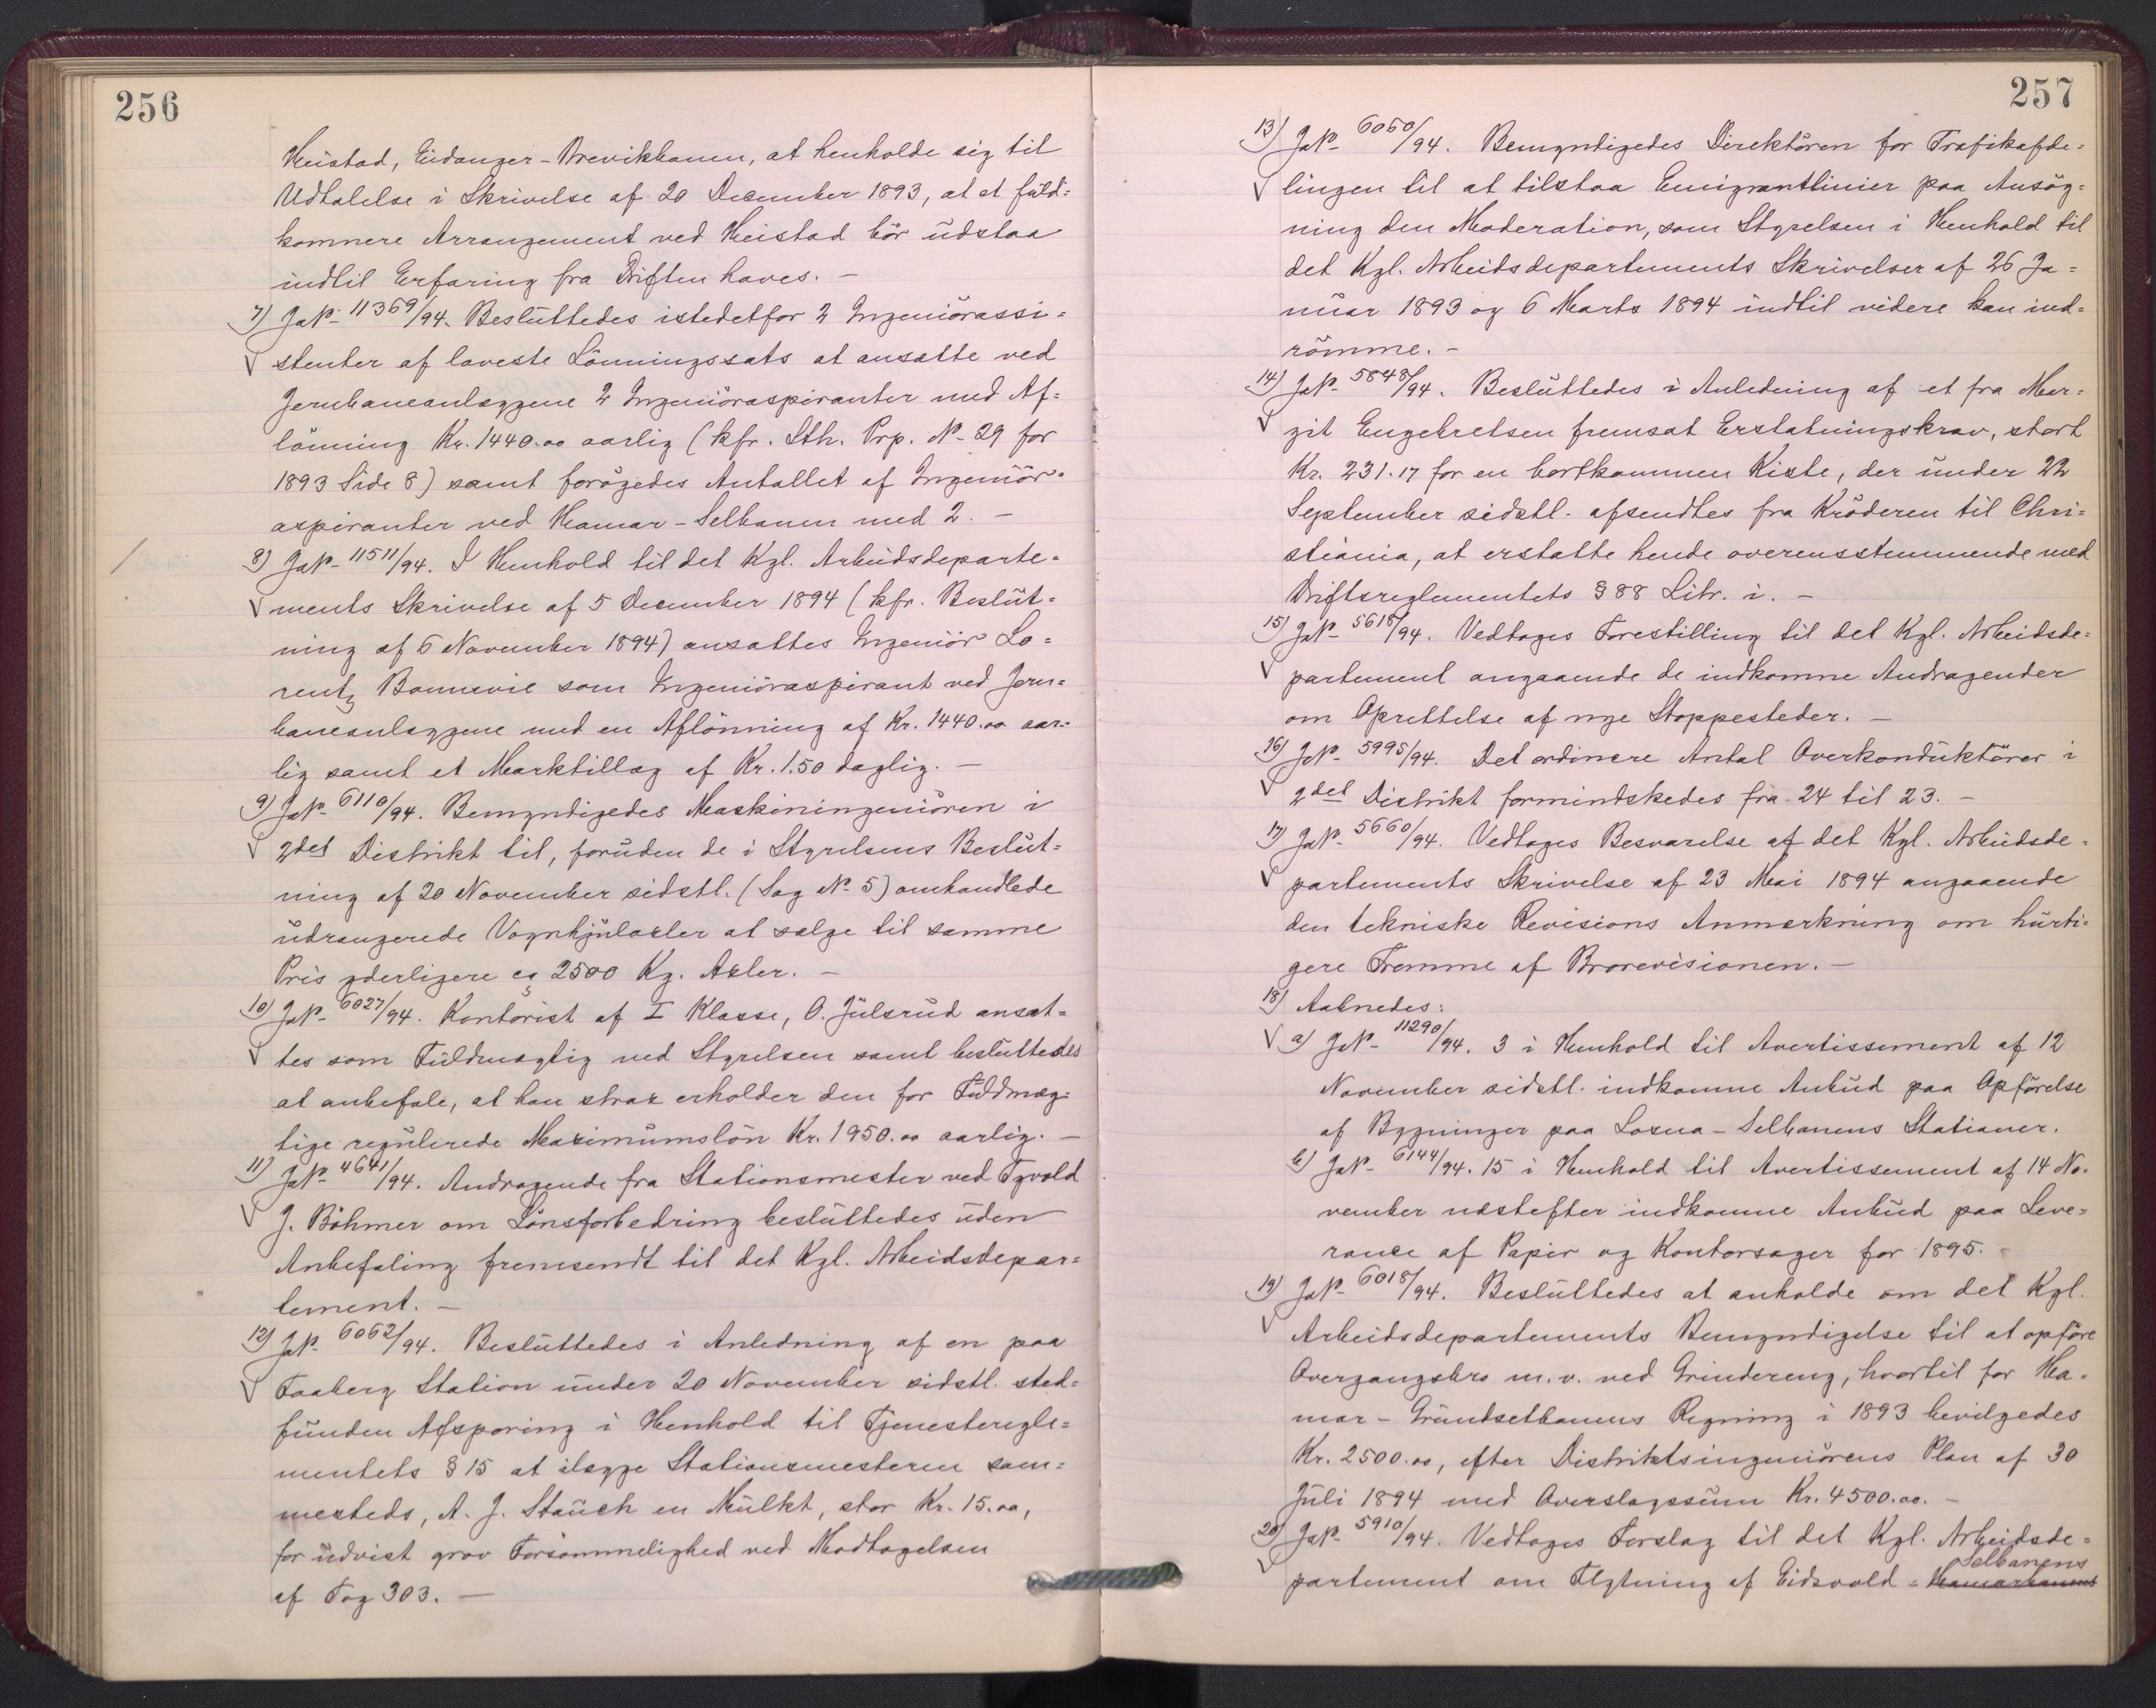 256
Heistad, Eidanger-Brevikbanen, at henholde sig til
Udtalelse i Skrivelse af 20 December 1893, at et fuld=
komnere Arrangement ved Heistad bör udstaa
indtil Erfaring fra Driften haves. —
7) JN° 11369/94. Besluttedes istedetfor 2 Ingeniörassi=
stenter af laveste Lönningssats at ansætte ved
Jernbaneanlæggene 2 Ingeniöraspiranter med Af=
lönning Kr. 1440.00 aarlig (kfr. Sth. Prp. N° 29 for
1893 Side 8) samt forögedes Antallet af Ingeniör=
aspiranter ved Hamar-Selbanen med 2. —
8) JN° 11511/94. I Henhold til det Kgl. Arbeidsdeparte=
ments Skrivelse af 5 December 1894 (kfr. Beslut=
ning af 6 November 1894) ansattes Ingeniör Lo=
rentz Bonnevie som Ingeniöraspirant ved Jern=
baneanlæggene med en Aflönning af Kr. 1440.00 aar=
lig samt et Marktillæg af Kr. 1.50 daglig. —
9) JN° 6110/94. Bemyndigedes Maskiningeniören i
2det Distrikt til, foruden de i Styrelsens Beslut=
ning af 20 November sidstl. (Sag N° 5) omhandlede
udrangerede Vognhjulaxler at sælge til samme
Pris yderligere ca 2500 Kg. Axler. —
10) JN° 6027/94. Kontorist af I Klasse, O. Julsrud ansat=
tes som Fuldmægtig ved Styrelsen samt besluttedes
at anbefale, at han strax erholder den for Fuldmæg=
tige regulerede Maximumslön Kr. 1950.00 aarlig. —
11) JN° 4641/94. Andragende fra Stationsmester ved Tyvold
J. Böhmer om Lönsforbedring besluttedes uden
Anbefaling fremsendt til det Kgl. Arbeidsdepar=
tement. —
12) JN° 6062/94. Besluttedes i Anledning af en paa
Faaberg Station under 20 November sidstl. sted=
funden Afsporing i Henhold til Tjenesteregle=
mentets § 15 at ilægge Stationsmesteren sam=
mesteds, A. J. Stauch en Mulkt, stor Kr. 15.00,
for udvist grov Forsömmelighed ved Modtagelsen
af Tog 303. —
257
13) JN° 6050/94. Bemyndigedes Direktören for Trafikafde=
lingen til at tilstaa Emigrantlinier paa Ansög=
ning den Moderation, som Styrelsen i Henhold til
det Kgl. Arbeidsdepartements Skrivelser af 26 Ja=
nuar 1893 og 6 Marts 1894 indtil videre kan ind=
römme. —
14) JN° 5848/94. Besluttedes i Anledning af et fra Mar=
git Engebretsen fremsat Erstatningskrav, stort
Kr. 231.17 for en bortkommen Kiste, der under 22
September sidstl. afsendtes fra Kröderen til Chri=
stiania, at erstatte hende overensstemmende med
Driftsreglementets § 88 Litr. i. —
15) JN° 5618/94. Vedtoges Forestilling til det Kgl. Arbeidsde=
partement angaaende de indkomne Andragender
om Oprettelse af nye Stoppesteder. —
16) JN° 5995/94. Det ordinære Antal Overkonduktörer i
2det Distrikt formindskedes fra 24 til 23. —
17) JN° 5660/94. Vedtoges Besvarelse af det Kgl. Arbeidsde=
partements Skrivelse af 23 Mai 1894 angaaende
den tekniske Revisions Anmærkning om hurti=
gere Fremme af Brorevisionen. —
18) Aabnedes:
a) JN° 11290/94. 3 i Henhold til Avertissement af 12
November sidstl. indkomne Anbud paa Opförelse
af Bygninger paa Losna-Selbanens Stationer.
b) JN° 6144/94. 15 i Henhold til Avertissement af 14 No=
vember næstefter indkomne Anbud paa Leve=
rance af Papir og Kontorsager for 1895.
19) JN° 6018/94. Besluttedes at anholde om det Kgl.
Arbeidsdepartements Bemyndigelse til at opföre
Overgangsbro m. v. ved Grindereng, hvortil for Ha=
mar-Grundsetbanens Regning i 1893 bevilgedes
Kr. 2500.00, efter Distriktsingeniörens Plan af 30
Juli 1894 med Overslagssum Kr. 4500.00. —
20) JN° 5910/94. Vedtoges Forslag til det Kgl. Arbeidsde=
Selbanens
partement om Flytning af Eidsvold-Hamarbanens